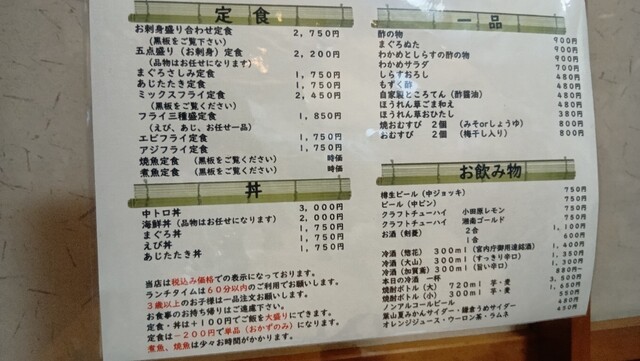 定食
お刺身盛り合わせ定食 2,750円
(黒板をご覧下さい)
五点盛り(お刺身)定食 2,200円
(品物はお任せになります)
まぐろさしみ定食 1,750円
あじたたき定食 1,750円
ミックスフライ定食 2,450円
(黒板をご覧ください)
フライ三種盛定食 1,850円
(えび、あじ、お任せ一品)
エビフライ定食 1,750円
アジフライ定食 1,750円
焼魚定食 (黒板をご覧ください) 時価
煮魚定食 (黒板をご覧ください) 時価
丼
中トロ丼 3,000円
海鮮丼 (品物はお任せになります) 2,000円
まぐろ丼 1,750円
えび丼 1,750円
あじたたき丼 1,750円
当店は税込み価格での表示になっております。
ランチタイムは60分以内のご利用でお願いします。
3歳以上のお子様は一品注文お願いします。
お食事のお持ち帰りはご遠慮下さい。
定食・丼は+100円でご飯を大盛りにできます。
定食は-200円で単品(おかずのみ)になります。
煮魚、焼魚は少々お時間がかかります。
一品
酢の物 900円
まぐろぬた 900円
わかめとしらすの酢の物 900円
わかめサラダ 700円
しらすおろし 480円
もずく酢 480円
自家製ところてん(酢醤油) 480円
ほうれん草ごま和え 480円
ほうれん草おひたし 380円
焼おむすび 2個 (みそorしょうゆ) 800円
おむすび 2個 (梅干し入り) 800円
お飲み物
樽生ビール(中ジョッキ) 750円
ビール(中ビン) 750円
クラフトチューハイ 小田原レモン 750円
クラフトチューハイ 湘南ゴールド 750円
お酒(剣菱) 2合 1,100円
1合 600円
冷酒(惣花) 300ml(宮内庁御用達銘酒) 1,400円
冷酒(大山) 300ml(すっきり辛口) 1,350円
冷酒(加賀鳶) 300ml(旨い辛口) 1,300円
本日の冷酒 一杯 880円~
焼酎ボトル(大) 720ml 芋・麦 3,500円
焼酎ボトル(小) 300ml 芋・麦 1,650円
ノンアルコールビール 550円
葉山夏みかんサイダー・鎌倉うめサイダー 480円
オレンジジュース・ウーロン茶・ラムネ 450円